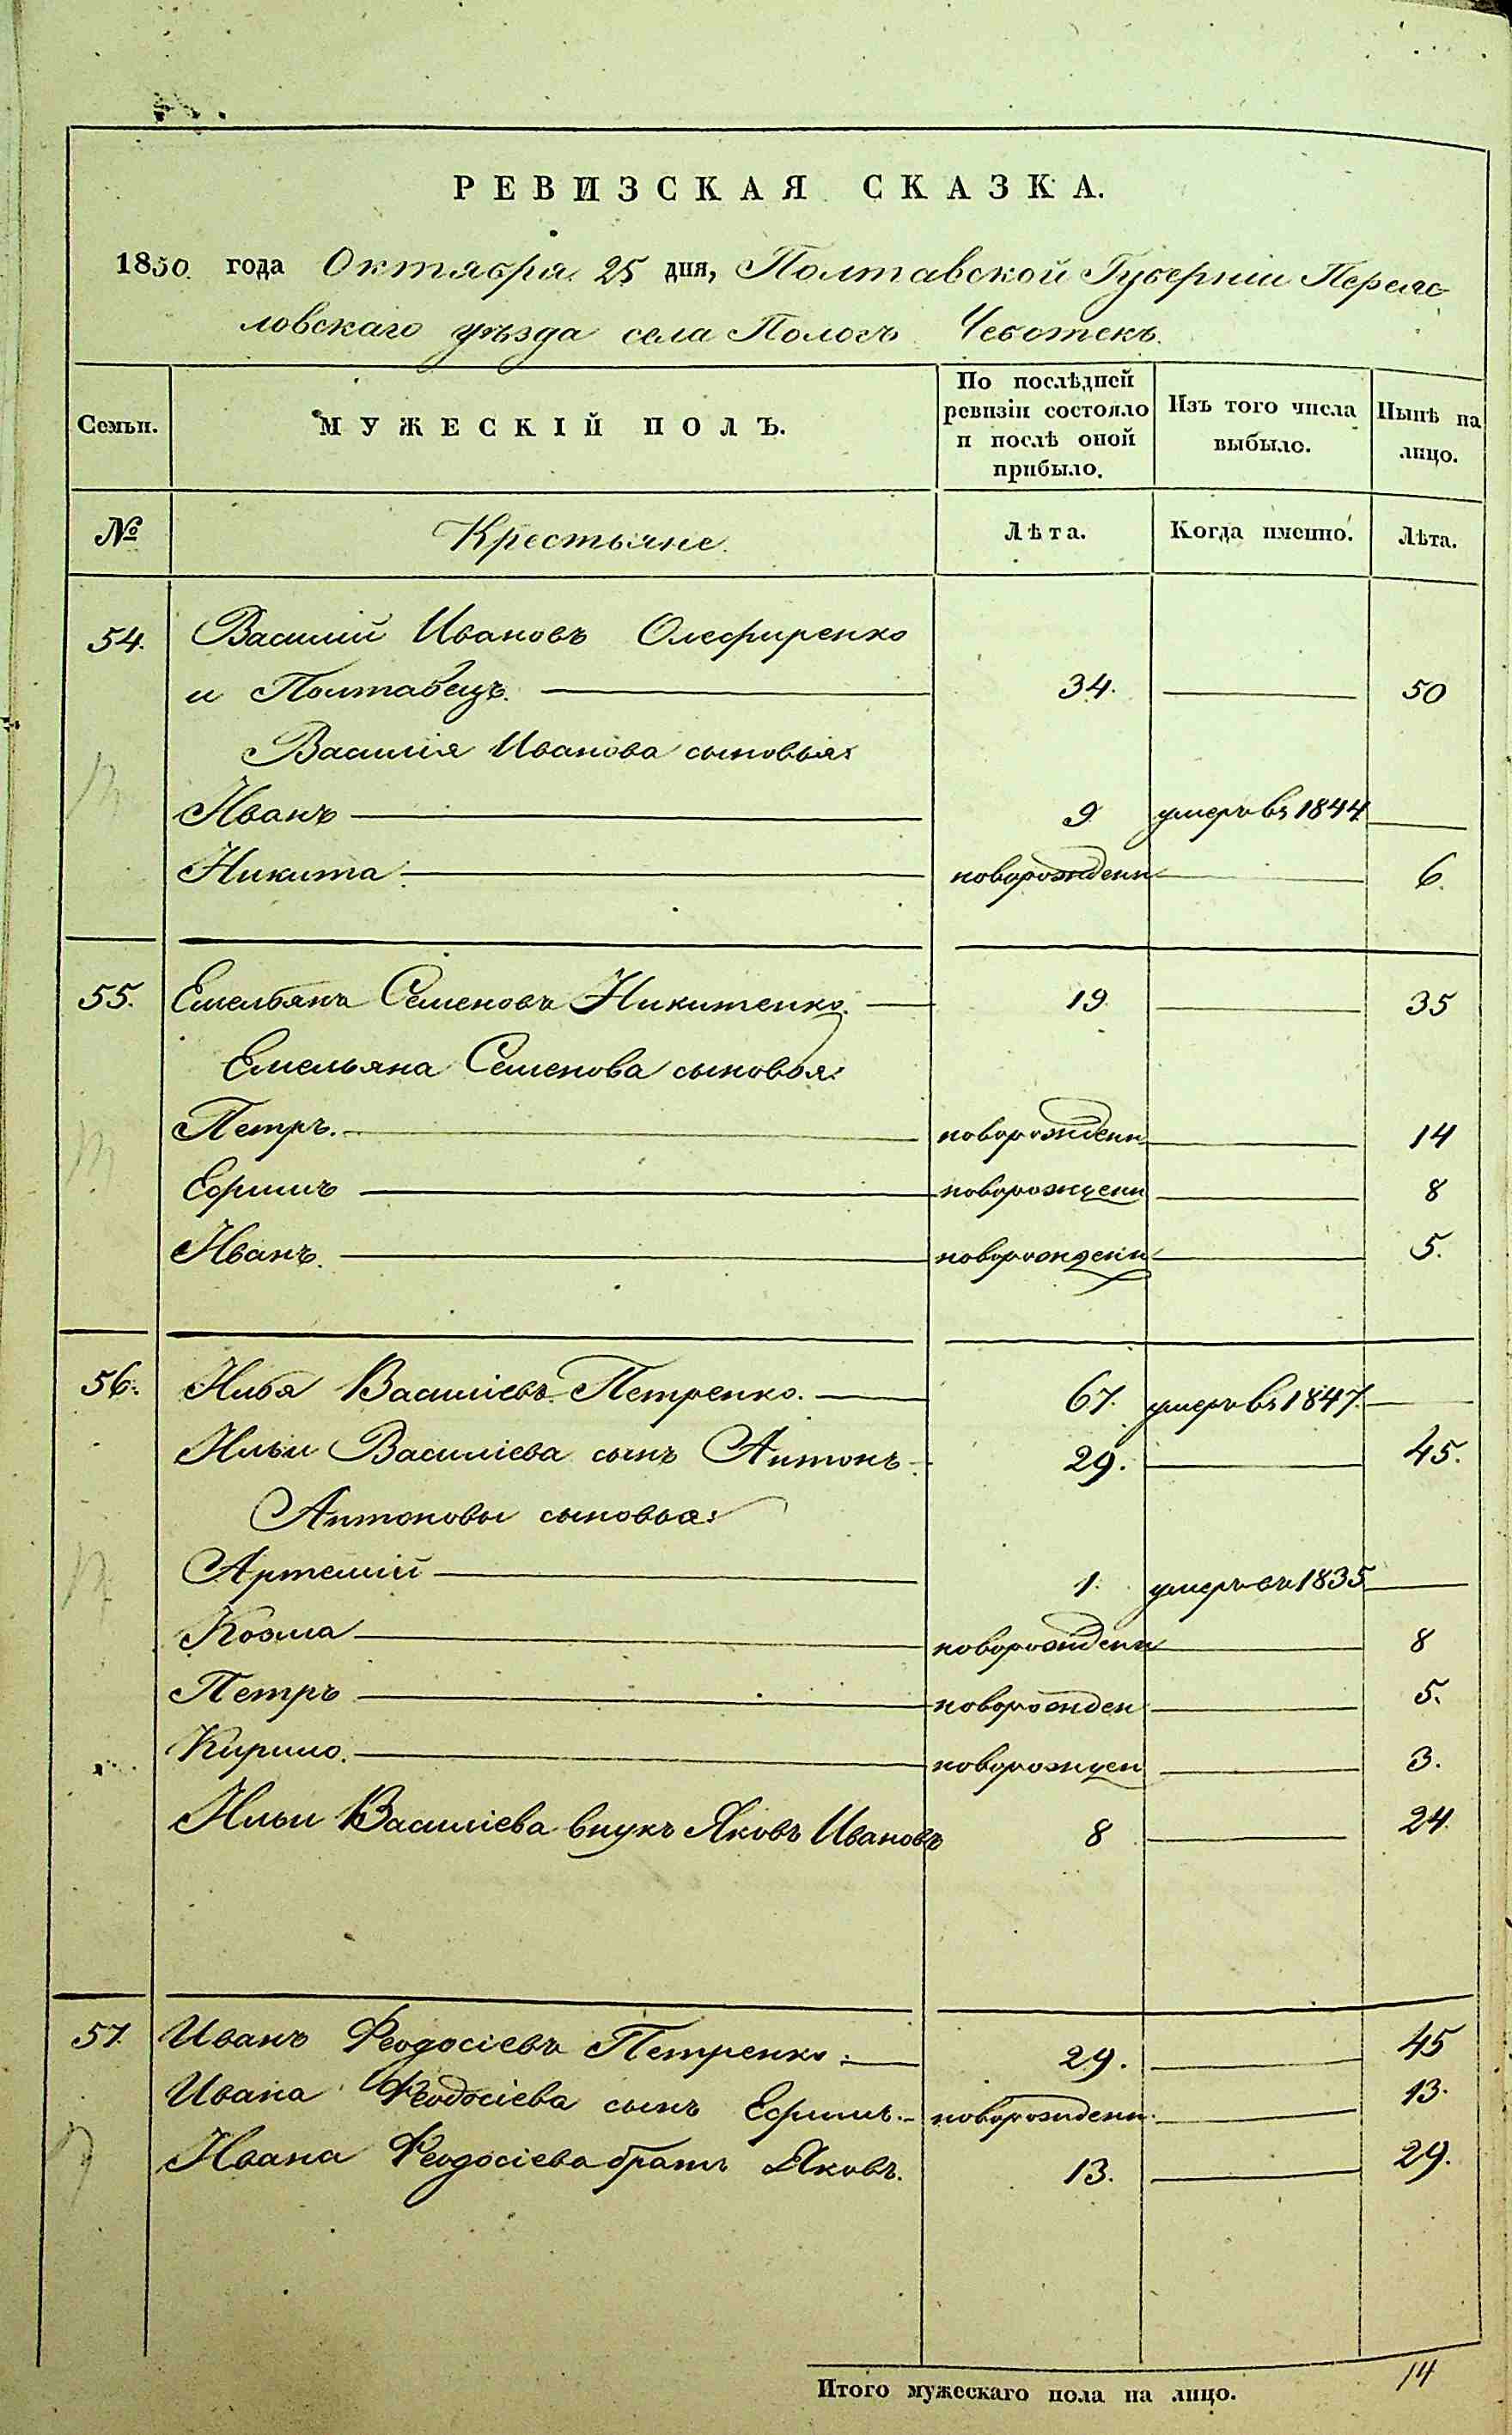 РЕВИЗСКАЯ СКАЗКА.
1850 года Октября 25 дня, Полтавской Губерніи Переяс-
ловскаго уѣзда села Пологъ Чеботекъ.
Семьи. МУЖЕСКІЙ ПОЛЪ. По послѣдней ревизіи состояло и послѣ оной прибыло. Изъ того числа выбыло. Нынѣ на лицо.
№ Крестьяне. Лѣта. Когда именно. Лѣта.
54. Василій Ивановъ Олефиренко
и Полтавецъ. 34. 50
Василія Иванова сыновья:
Иванъ 9 умеръ въ 1844
Никита новорожденн 6.
55. Емельянъ Семеновъ Никитенко. 19 35
Емельяна Семенова сыновья:
Петръ. новорожденн 14
Ефимъ новорожденн 8
Иванъ. новорожденн 5.
56. Илья Василіевъ Петренко. 67. умеръ въ 1847.
Ильи Василіева сынъ Антонъ. 29. 45.
Антоновы сыновья:
Артемій 1. умеръ въ 1835
Козма новорожденн 8
Петръ новорожден 5.
Кирило. новорожден 3.
Ильи Василіева внукъ Яковъ Ивановъ 8 24
57. Иванъ Феодосіевъ Петренко. 29. 45
Ивана Феодосіева сынъ Ефимъ. новорожденн. 13.
Ивана Феодосіева братъ Яковъ. 13. 29.
Итого мужескаго пола на лицо. 14